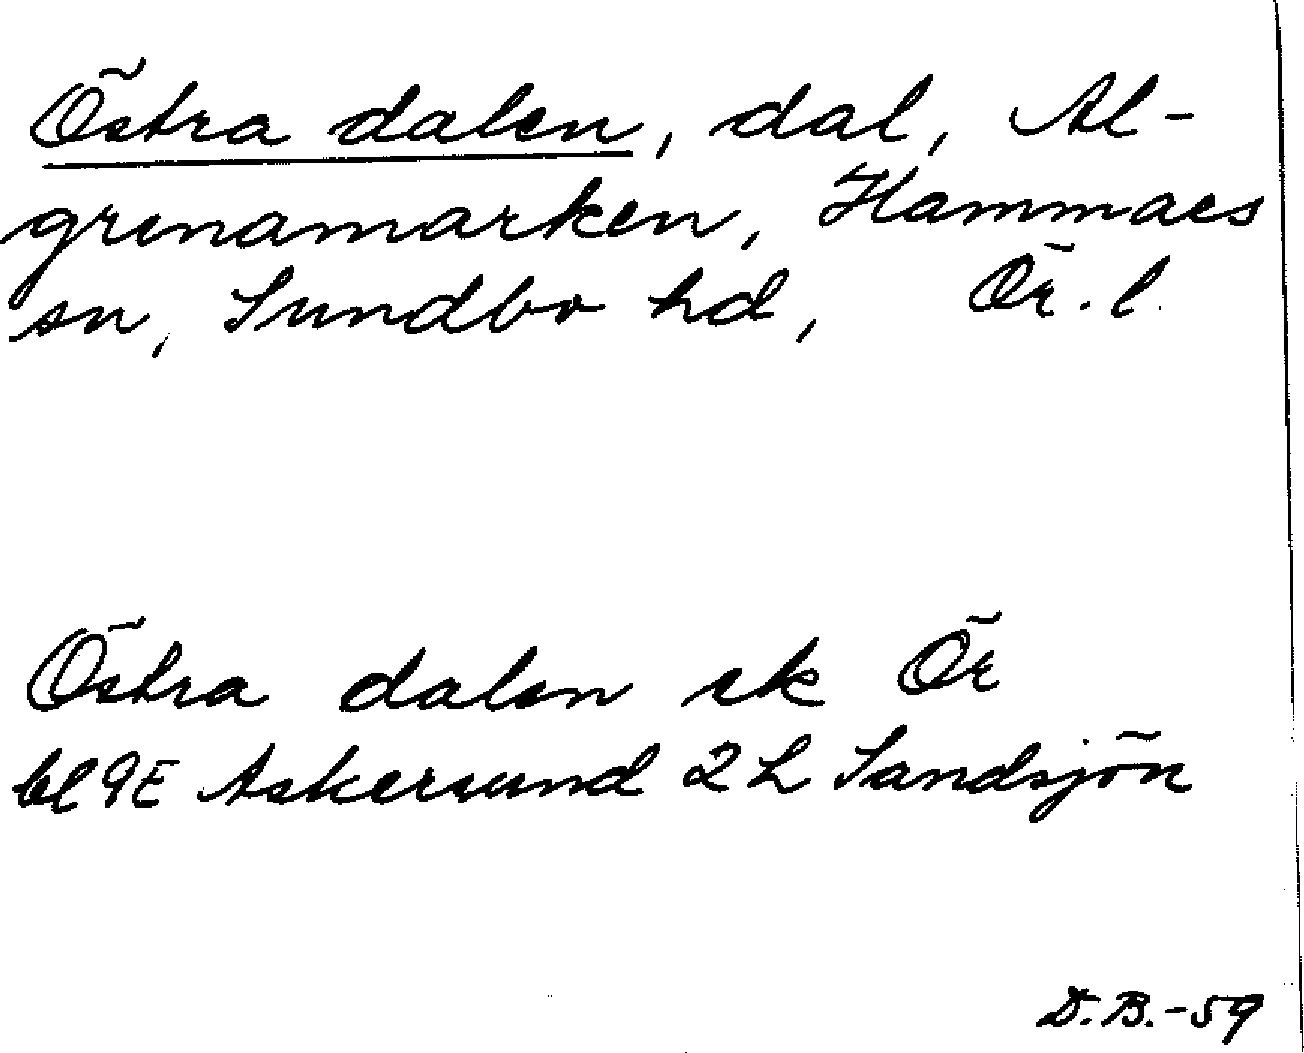 Östra dalen, dal, Al-
grenamarken, Hammars
sn, Sundbo hd, Ör. l.
Östra dalen ek Ör
bl 9E Askersund 2 h Sandsjön
D.B.-59